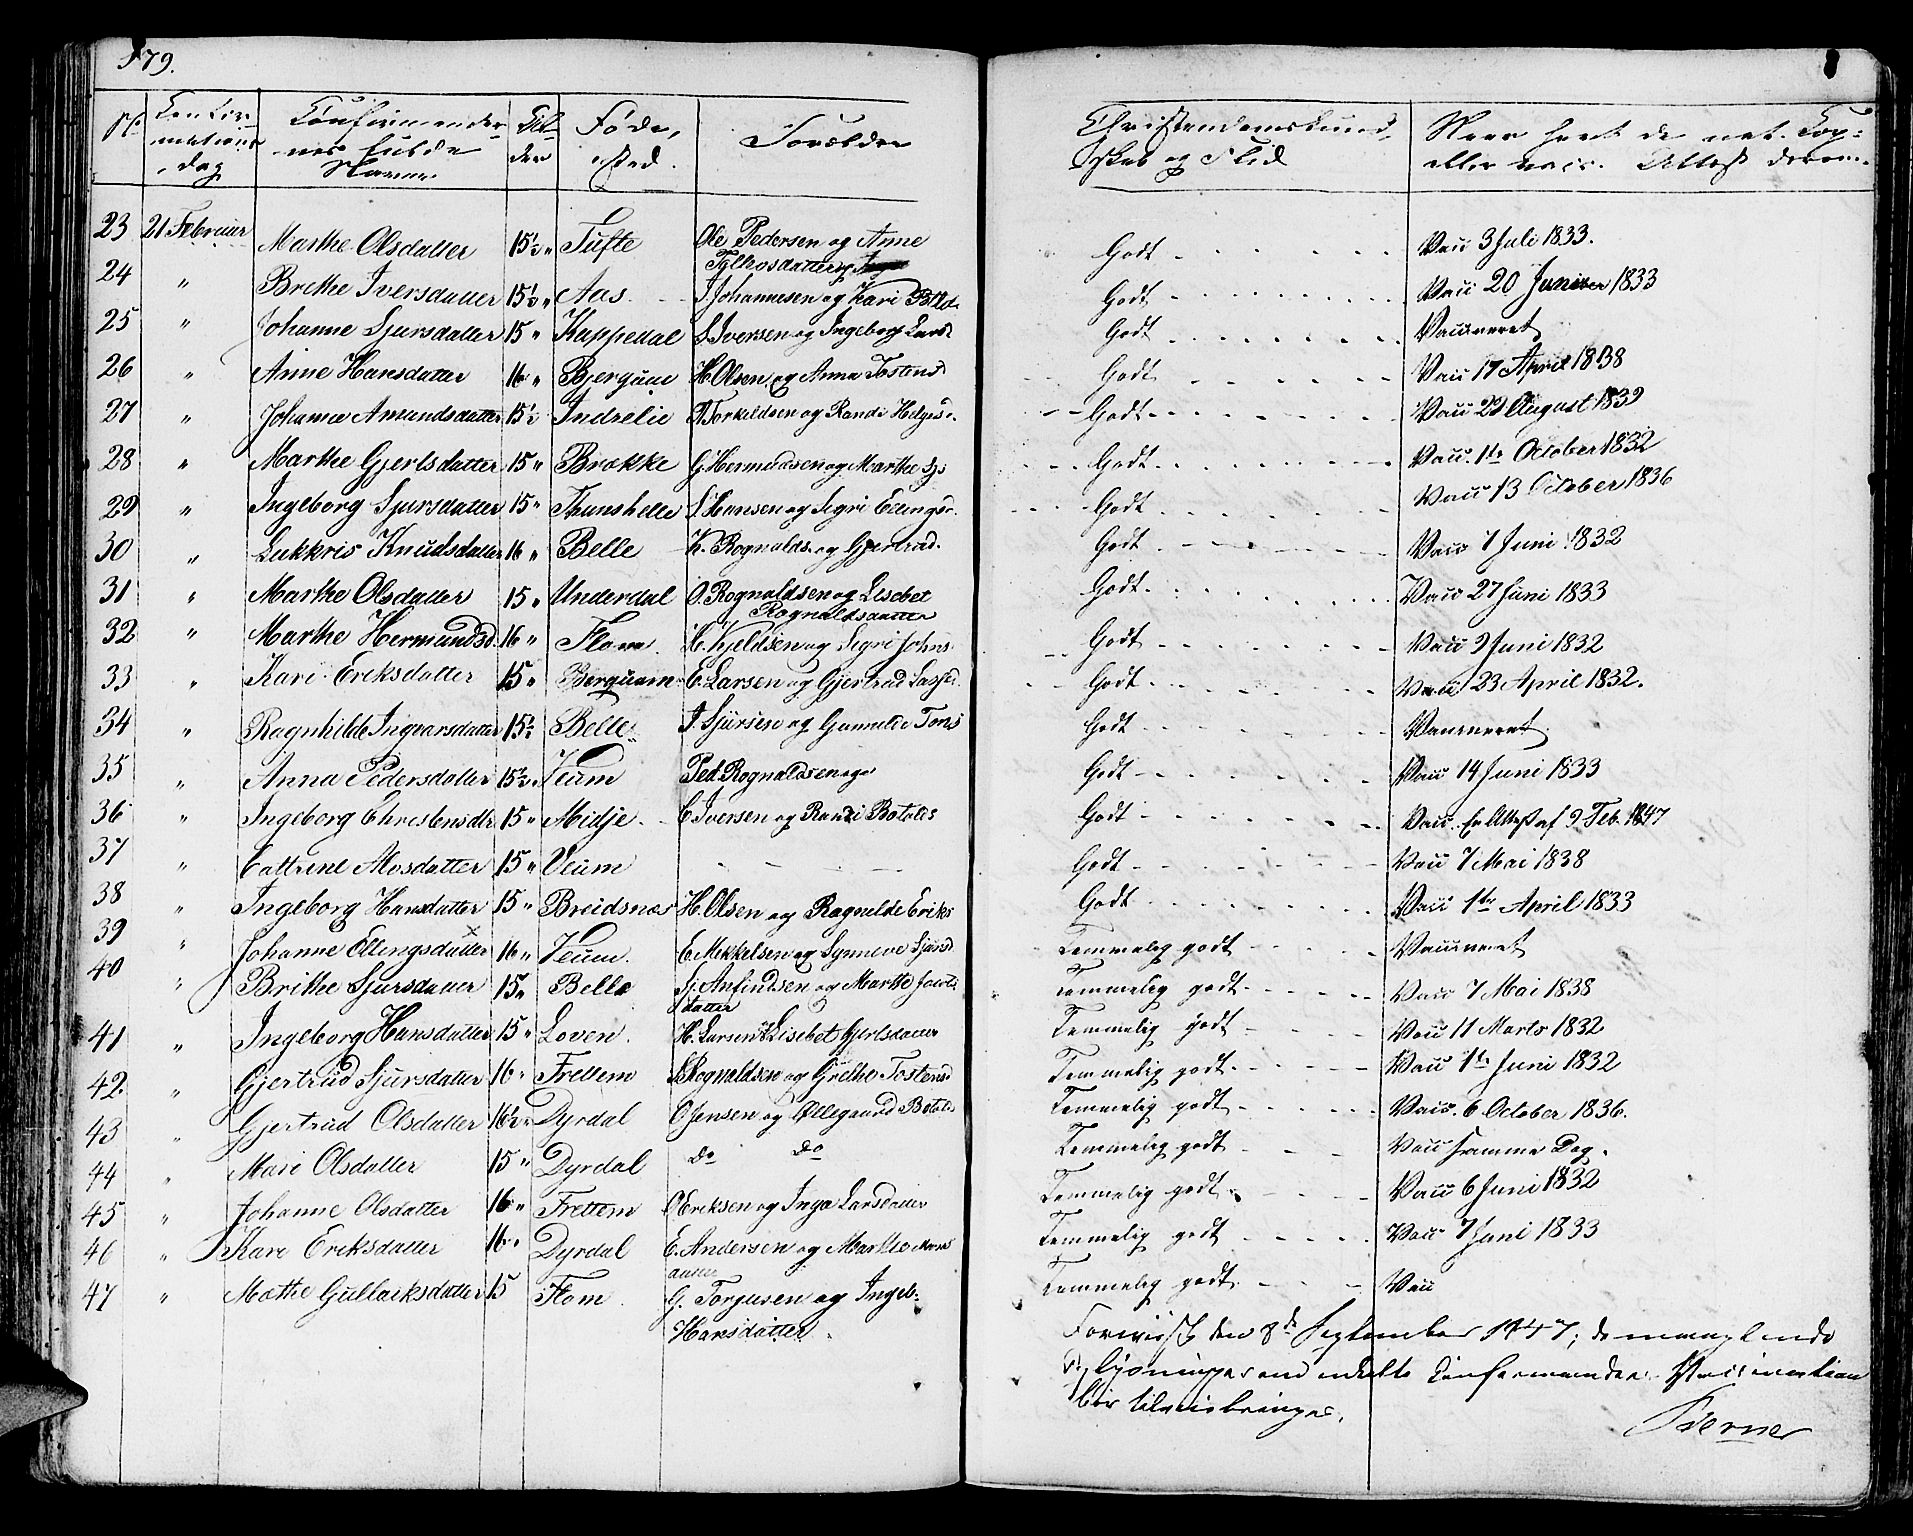 179.
No Confirmations dag Confirmandernes fulde Navne Alder Føde, sted. Forældre Christendomskundskab og Flid Naar havt de nat. Kop: eller vacc. Attest derom.
23 21 Februar Marthe Olsdatter 15½ " Tufte Ole Pedersen og Anne Godt Vacc 3 Juli 1833.
24 " Brithe Iversdatter 15½ " Aas I Johannesen og Kari Godt Vacc 20 Juni 1833
25 " Johanne Sjursdatter 15 " Kappedal S. Iversen og Ingeborg Larsd Godt Vaccineret
26 " Anne Hansdatter 16 " Bjergum H. Olsen og Anna Tostensd Godt Vacc 17 April 1838
27 " Johanne Amundsdatter 15½ Indrelie A Torkildsen og Randi Helgesd. Godt Vacc 22 August 1839
28 " Marthe Gjerlsdatter 15 " Brække G. Hermundsen og Marthe Godt Vacc. 1te October 1832
29 " Ingeborg Sjursdatter 15 " Thunshelle S. Hansen og Sigri Ellingsd. Godt Vacc 13 October 1836
30 " Lukkris Knudsdatter 16 " Belle K. Rognalds. og Gjertrud. Godt Vacc 7 Juni 1832
31 " Marthe Olsdatter 15 " Underdal O. Rognaldsen og Lisebet Rognaldsdatter Godt Vacc 27 Juni 1833
32 " Marthe Hermundsd. 16 " Flom. H. Kjeldsen og Sigri Johns Godt Vacc 9 Juni 1832
33 " Kari Eriksdatter 15 " Berquam E. Larsen og Gjertrud Godt Vacc 23 April 1832.
34 " Ragnhilde Ingvarsdatter 15½ Belle. I. Sjursen og Gunnilde Godt Vaccineret
35 " Anna Pedersdatter 15½ " Veum Ped. Rognaldsen og Godt Vacc 14 Juni 1833
36 " Ingeborg Christensdtr 15 " Midje C Iversen og Randi Botolds Godt Vacc. Attest af 9 Feb. 1847
37 " Cathrine Mosdatter 15 " Veum Godt Vacc 7 Mai 1838
38 " Ingeborg Hansdatter 15 " Breidsnæs H. Olsen og Ragnilde Eriks Godt Vacc 1te April 1833
39 " Johanne Ellingsdatter 16 " Veum. E. Mikkelsen og Synneve Sjursd Temmelig godt Vaccineret
40 " Brithe Sjursdatter 15 " Belle Sj. Anfindsen og Marthe datter Temmelig godt Vacc 7 Mai 1838
41 " Ingeborg Hansdatter 15 " Loven. H. Larsen Lisebet Gjerlsdatter Temmelig godt Vacc 11 Marts 1832
42 " Gjertrud Sjursdatter 16 " Frettem S Rognaldsen og Grethe Tostensd Temmelig godt Vacc 1te Juni 1832
43 " Gjertrud Olsdatter 16½ " Dyrdal O Jensen og Øllegaard Botolds Temmelig godt Vacc. 6 October 1836.
44 " Mari Olsdatter 15 " Dyrdal do do Temmelig godt Vacc samme Dag.
45 " Johanne Olsdatter 16 " Frettem O Eriksen og Inga Larsdatter Temmelig godt Vacc 6 Juni 1832
46 " Kari Eriksdatter 16 " Dyrdal E. Andersen og Marthe datter Temmelig godt Vacc 7 Juni 1833
47 " Mathe Gullaiksdatter 15 Flom. G. Torjusen og Ingeb: Hansdatter. Temmelig godt Vacc
Foreviist den 8de September 1847; de manglende
Oplysninger om enkelte Confirmanders Vaccination
bør tilveiebringes.